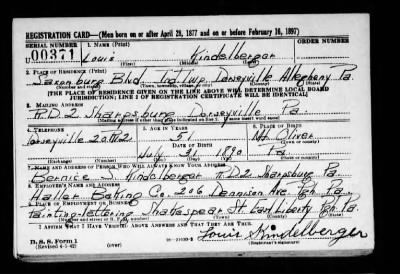 REGISTRATION CARD—(Men born on or after April 28, 1877 and on or before February 16, 1897)
SERIAL NUMBER
1. NAME (Print)
ORDER NUMBER
U 00371
Louis Kindelberger
2. PLACE OF RESIDENCE (Print)
Saxonburg Blvd. Ind. Twp. Dorseyville Allegheny Pa.
(Number and street) (Town, township, village, or city) (County) (State)
[THE PLACE OF RESIDENCE GIVEN ON THE LINE ABOVE WILL DETERMINE LOCAL BOARD
JURISDICTION; LINE 2 OF REGISTRATION CERTIFICATE WILL BE IDENTICAL]
3. MAILING ADDRESS
R.D. 2 Sharpsburg Dorseyville Pa.
[Mailing address if other than place indicated on line 2. If same insert word same]
4. TELEPHONE
5. AGE IN YEARS
6. PLACE OF BIRTH
Dorseyville
51
Mt. Oliver
DATE OF BIRTH
(Town or county)
July 21 1890
Pa.
(Exchange) (Number)
(Mo.) (Day) (Yr.)
(State or country)
7. NAME AND ADDRESS OF PERSON WHO WILL ALWAYS KNOW YOUR ADDRESS
Bernice S. Kindelberger R.D. 2 Sharpsburg Pa.
8. EMPLOYER'S NAME AND ADDRESS
Haller Baking Co. 206 Dennison Ave. Pgh. Pa.
9. PLACE OF EMPLOYMENT OR BUSINESS
Painting-lettering Shakespear St. East Liberty Pgh. Pa.
(Number and street or R. F. D. number) (Town) (County) (State)
I AFFIRM THAT I HAVE VERIFIED ABOVE ANSWERS AND THAT THEY ARE TRUE.
Louis Kindelberger
D. S. S. Form 1
(Revised 4-1-42) (over)
(Registrant's signature)